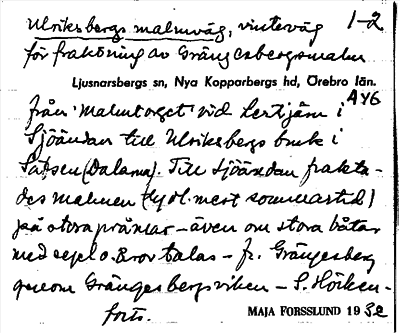 Ulriksbergs malmväg, vinterväg 1-2
för fraktning av Grängesbergsmalm
Ljusnarsbergs sn, Nya Kopparbergs hd, Örebro län.
A46
från "Malmtorget" vid Lertjärn i
Sjöändan till Ulriksbergs bruk i
Säfsen (Dalarna). Till Sjöändan frakta-
des malmen (tydl. mest sommartid)
på stora pråmar – även om stora båtar
med segel o. åror talas – fr. Grängesberg
genom Grängesbergsviken – S. Hörken –
forts.
MAJA FORSSLUND 1932